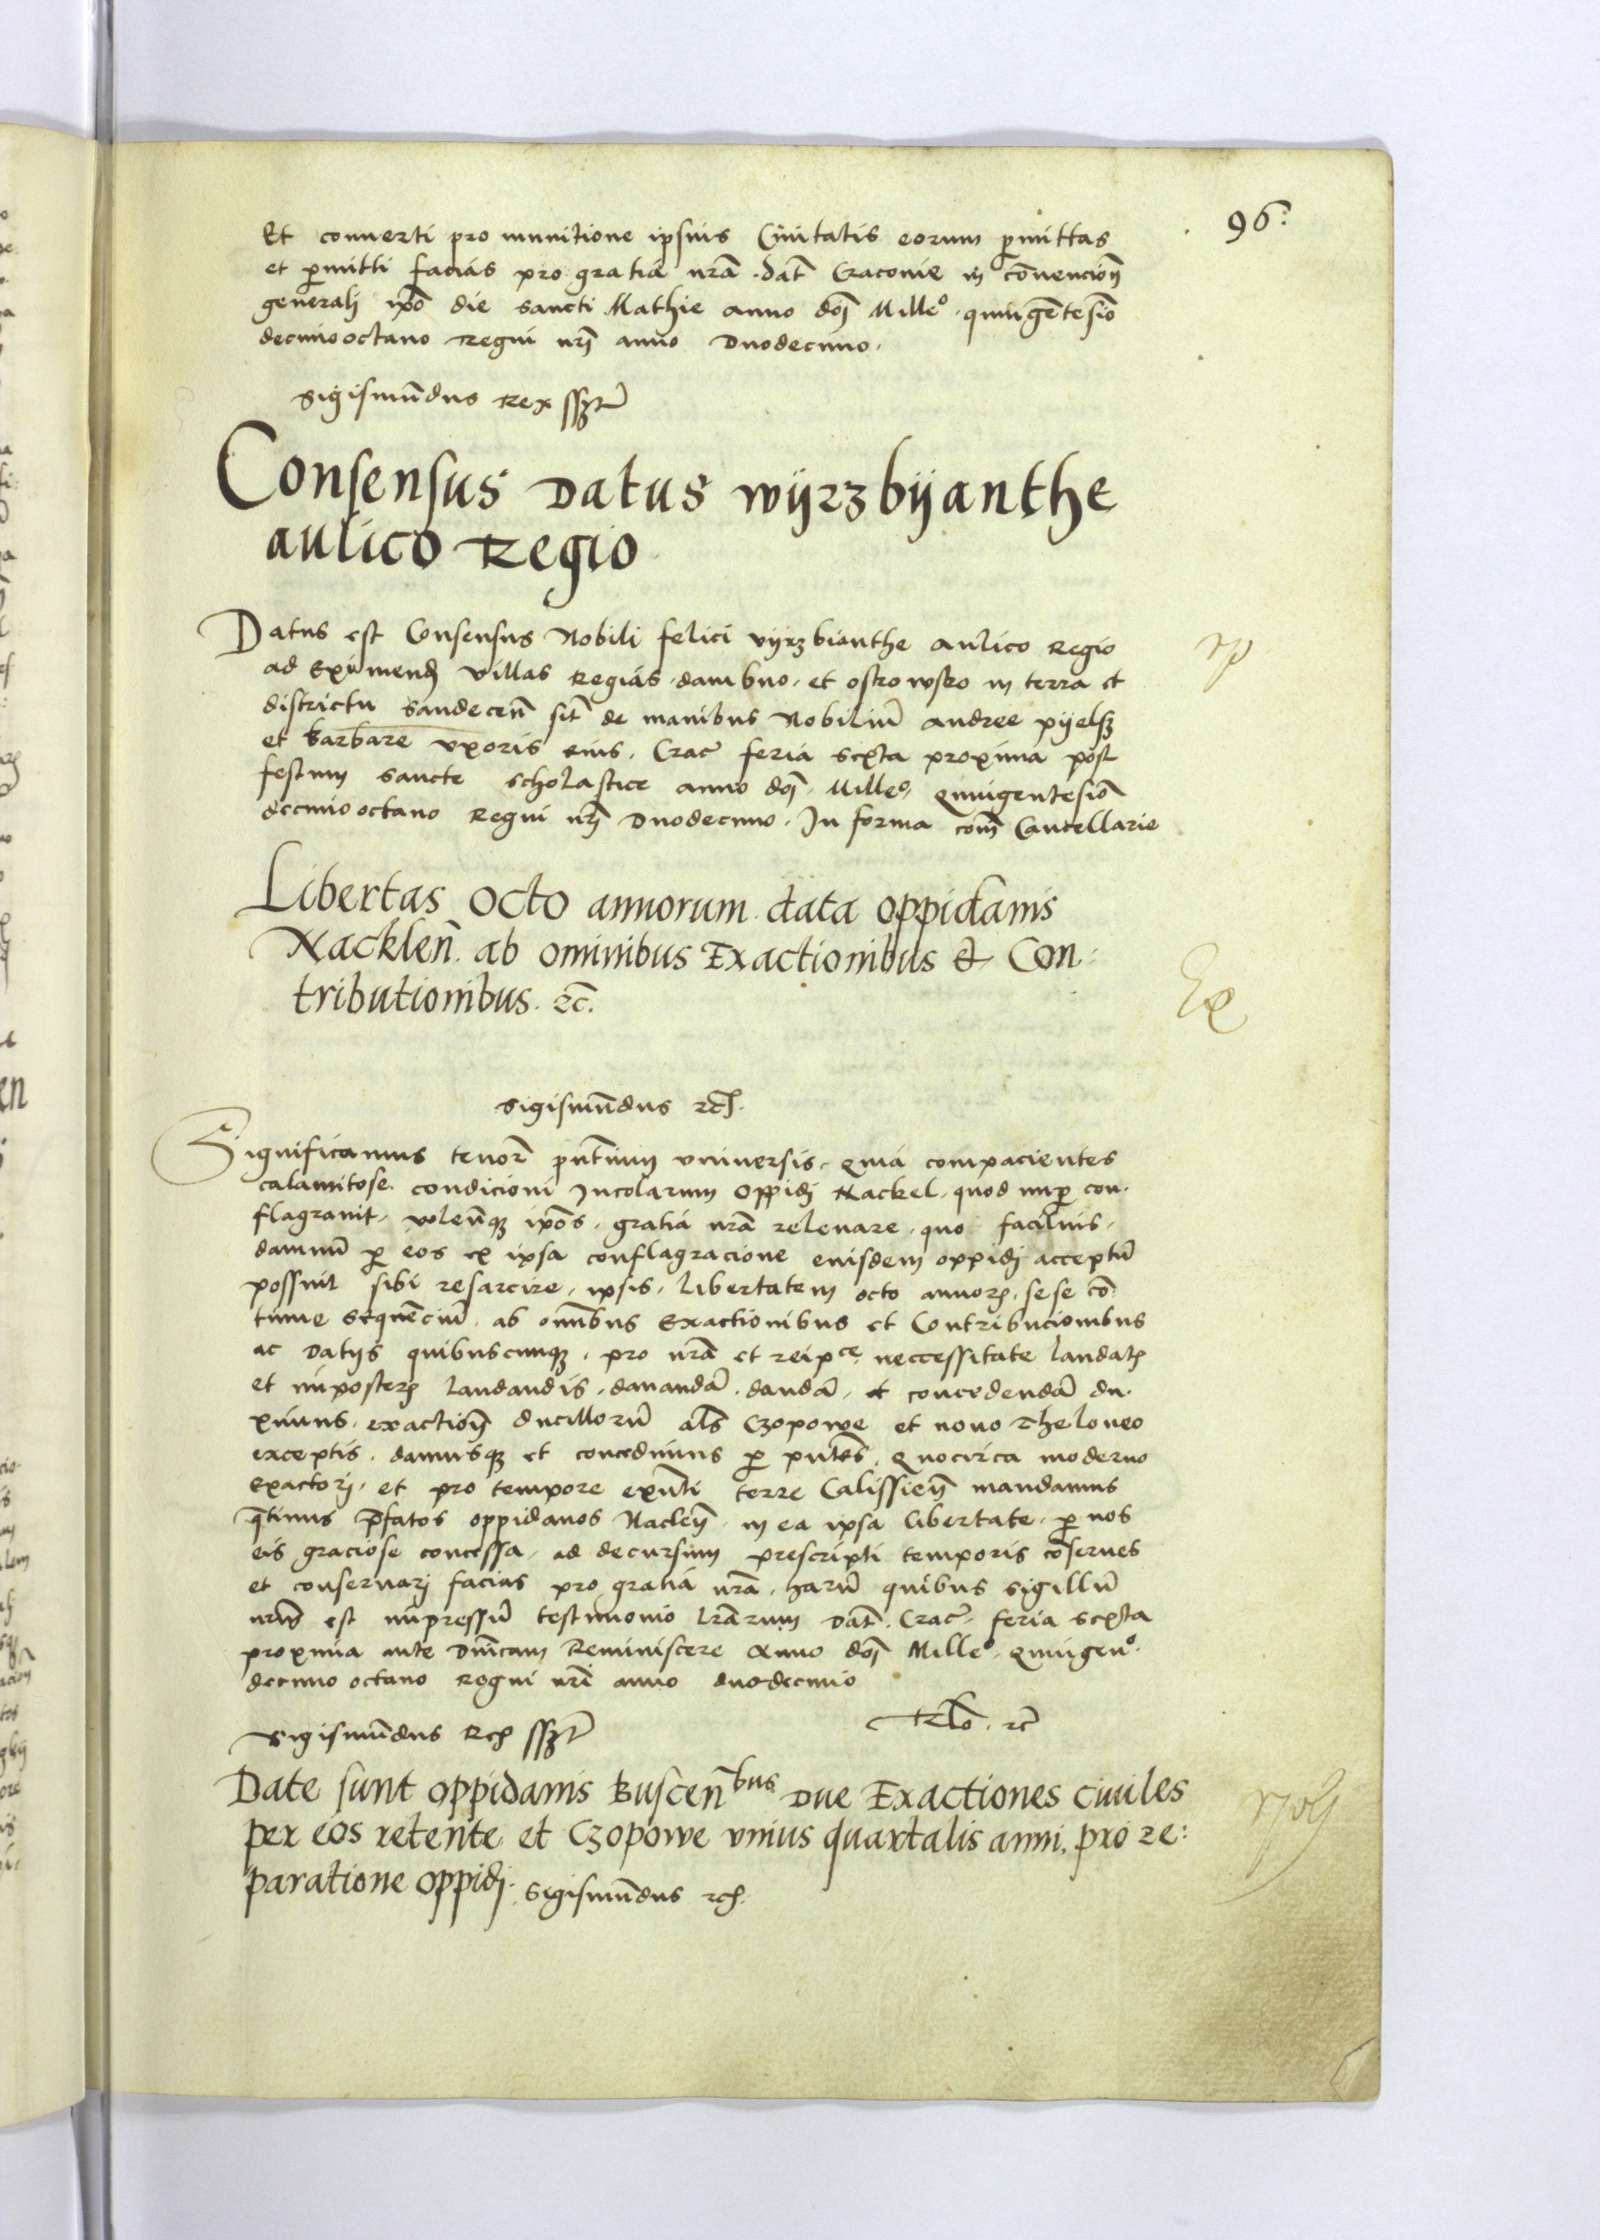 96.
Et conuerti pro munitione ipsius Ciuitatis eorum p̄mittas
et p̄mitti facias pro gratia nr̄a. Dat̄ Cracouie in cōnencion̄
generali ip̄o die sancti Mathie anno dōj Milleº. quingētesīo
decimooctauo Regni nr̄j anno Duodecimo.
Sigismūdus Rex sszt
Consensus datus wijrzbijanthe
aulico Regio
Datus est Consensus Nobili felici vijrzbianthe aulico Regio
ad Eximend̄ villas Regias. dambno. et ostrowsko in terra et
districtu Sandecen̄ sit̄ de manibus Nobiliū andree pijelsz
et barbare vxoris eius. Crac̄ feria sexta proxima post
festum sancte scholastice anno dōj. Milleº. quingentesīo
decimooctauo Regni nr̄j Duodecimo. In forma com̄ Cancellarie
Libertas octo annorum data oppidanis
Nacklen̄. ab omnibus Exactionibus & Con:
tributionibus. ēc.
Sigismūdus ēc.
Significamus tenor̄ p̄ntium vniuersis. quia compacientes
calamitose. condicioni Incolarum oppidj Nackel. quod nup̄ con.
flagrauit. volen̄qz ip̄os. gratia nr̄a releuare. quo facilius.
damnū p̄ eos ex ipsa conflagracione eiusdem oppidj acceptū
possint sibi resarcire. ipsis. libertatem octo annor. sese cō
tinue sequēciū. ab omībus exactionibus et Contribucionibus
ac datijs quibuscunqz. pro nr̄a et reipce neccessitate laudat
et imposter laudandis. donandā. dandā. et concedendā du.
ximus. exaction̄ ducillorū als̄ Czopowe et nouo Theloneo
exceptis. damusqz et concedimus p̄ pn̄tes. quocirca moderno
exactorj. et pro tempore exn̄ti terre Calissien̄ mandamus
q̄tinus p̄fatos oppidanos Naclen̄. in ea ipsa libertate. p̄ nos
eis graciose concessa. ad decursum prescripti temporis cōserues
et conseruarj facias pro gratia nr̄a. harū quibus sigillū
nr̄m est impressū testimonio lr̄arum. Dat̄. Crac̄. feria sexta
proxima ante Dn̄icam Reminiscere Anno dōj Milleº. quingenº.
decimo octauo Regni nr̄i anno duodecimo
Sigismūdus Rex sszt
Rlō. ēc
Date sunt oppidanis Buscen̄bus due Exactiones ciuiles
per eos retente et Czopowe vnius quartalis anni. pro re:
paratione oppidj. Sigismūdus ēc.